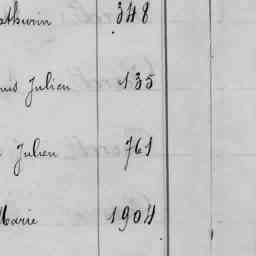 athurin 348
uis Julien 135
Julien 761
Marie 1904